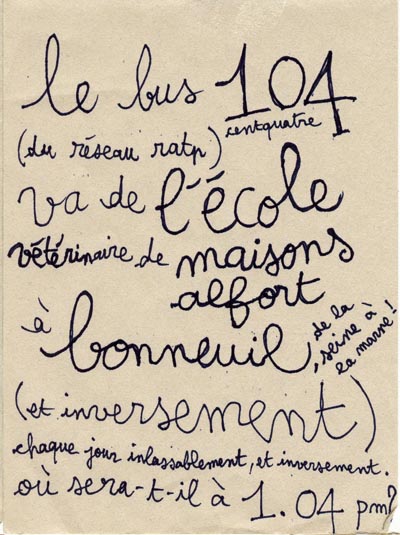 le bus 104
centquatre
(du réseau ratp)
va de l'école
vétérinaire de maisons
alfort
à bonneuil,
de la
seine à
la marne!
(et inversement)
chaque jour inlassablement, et inversement.
où sera-t-il à 1.04 pm?